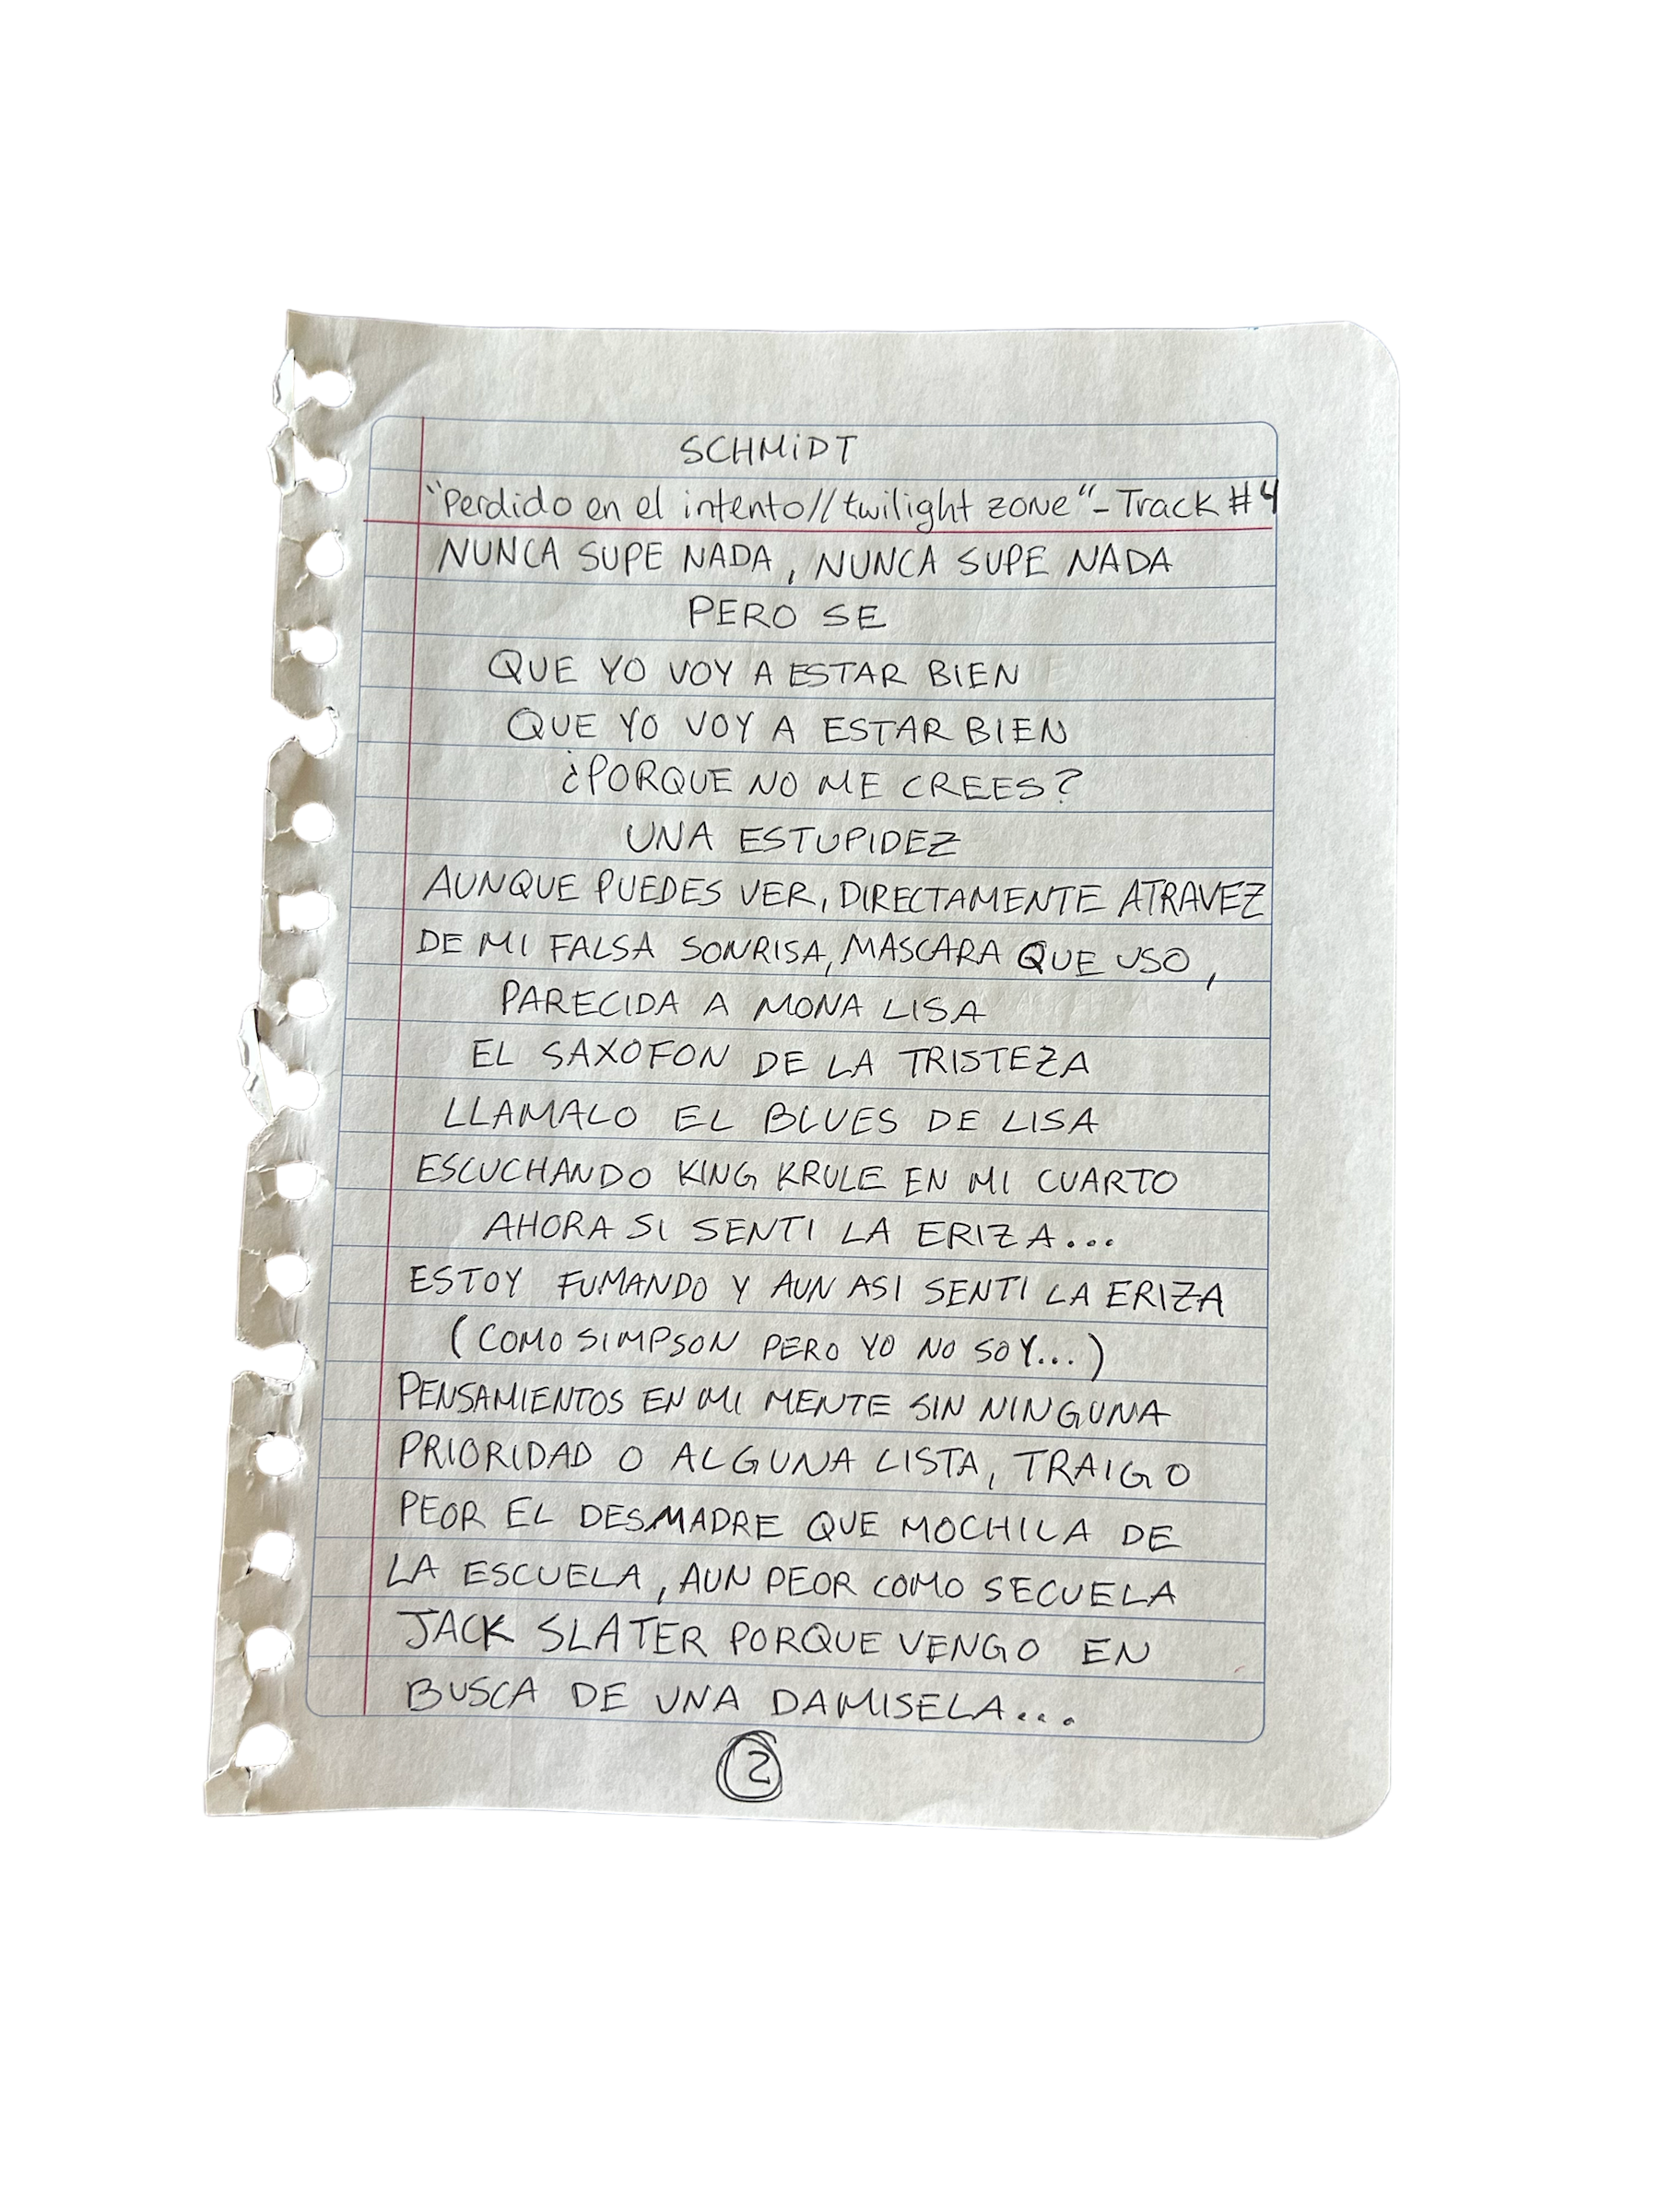 SCHMiDT
"Perdido en el intento//twilight zone" - Track #4
NUNCA SUPE NADA, NUNCA SUPE NADA
PERO SE
QUE YO VOY A ESTAR BIEN
QUE YO VOY A ESTAR BIEN
¿PORQUE NO ME CREES?
UNA ESTUPIDEZ
AUNQUE PUEDES VER, DIRECTAMENTE ATRAVEZ
DE MI FALSA SONRISA, MASCARA QUE USO,
PARECIDA A MONA LISA
EL SAXOFON DE LA TRISTEZA
LLAMALO EL BLUES DE LISA
ESCUCHANDO KING KRULE EN MI CUARTO
AHORA SI SENTI LA ERIZA...
ESTOY FUMANDO Y AUN ASI SENTI LA ERIZA
(COMO SIMPSON PERO YO NO SOY...)
PENSAMIENTOS EN MI MENTE SIN NINGUNA
PRIORIDAD O ALGUNA LISTA, TRAIGO
PEOR EL DESMADRE QUE MOCHILA DE
LA ESCUELA, AUN PEOR COMO SECUELA
JACK SLATER PORQUE VENGO EN
BUSCA DE UNA DAMISELA...
2